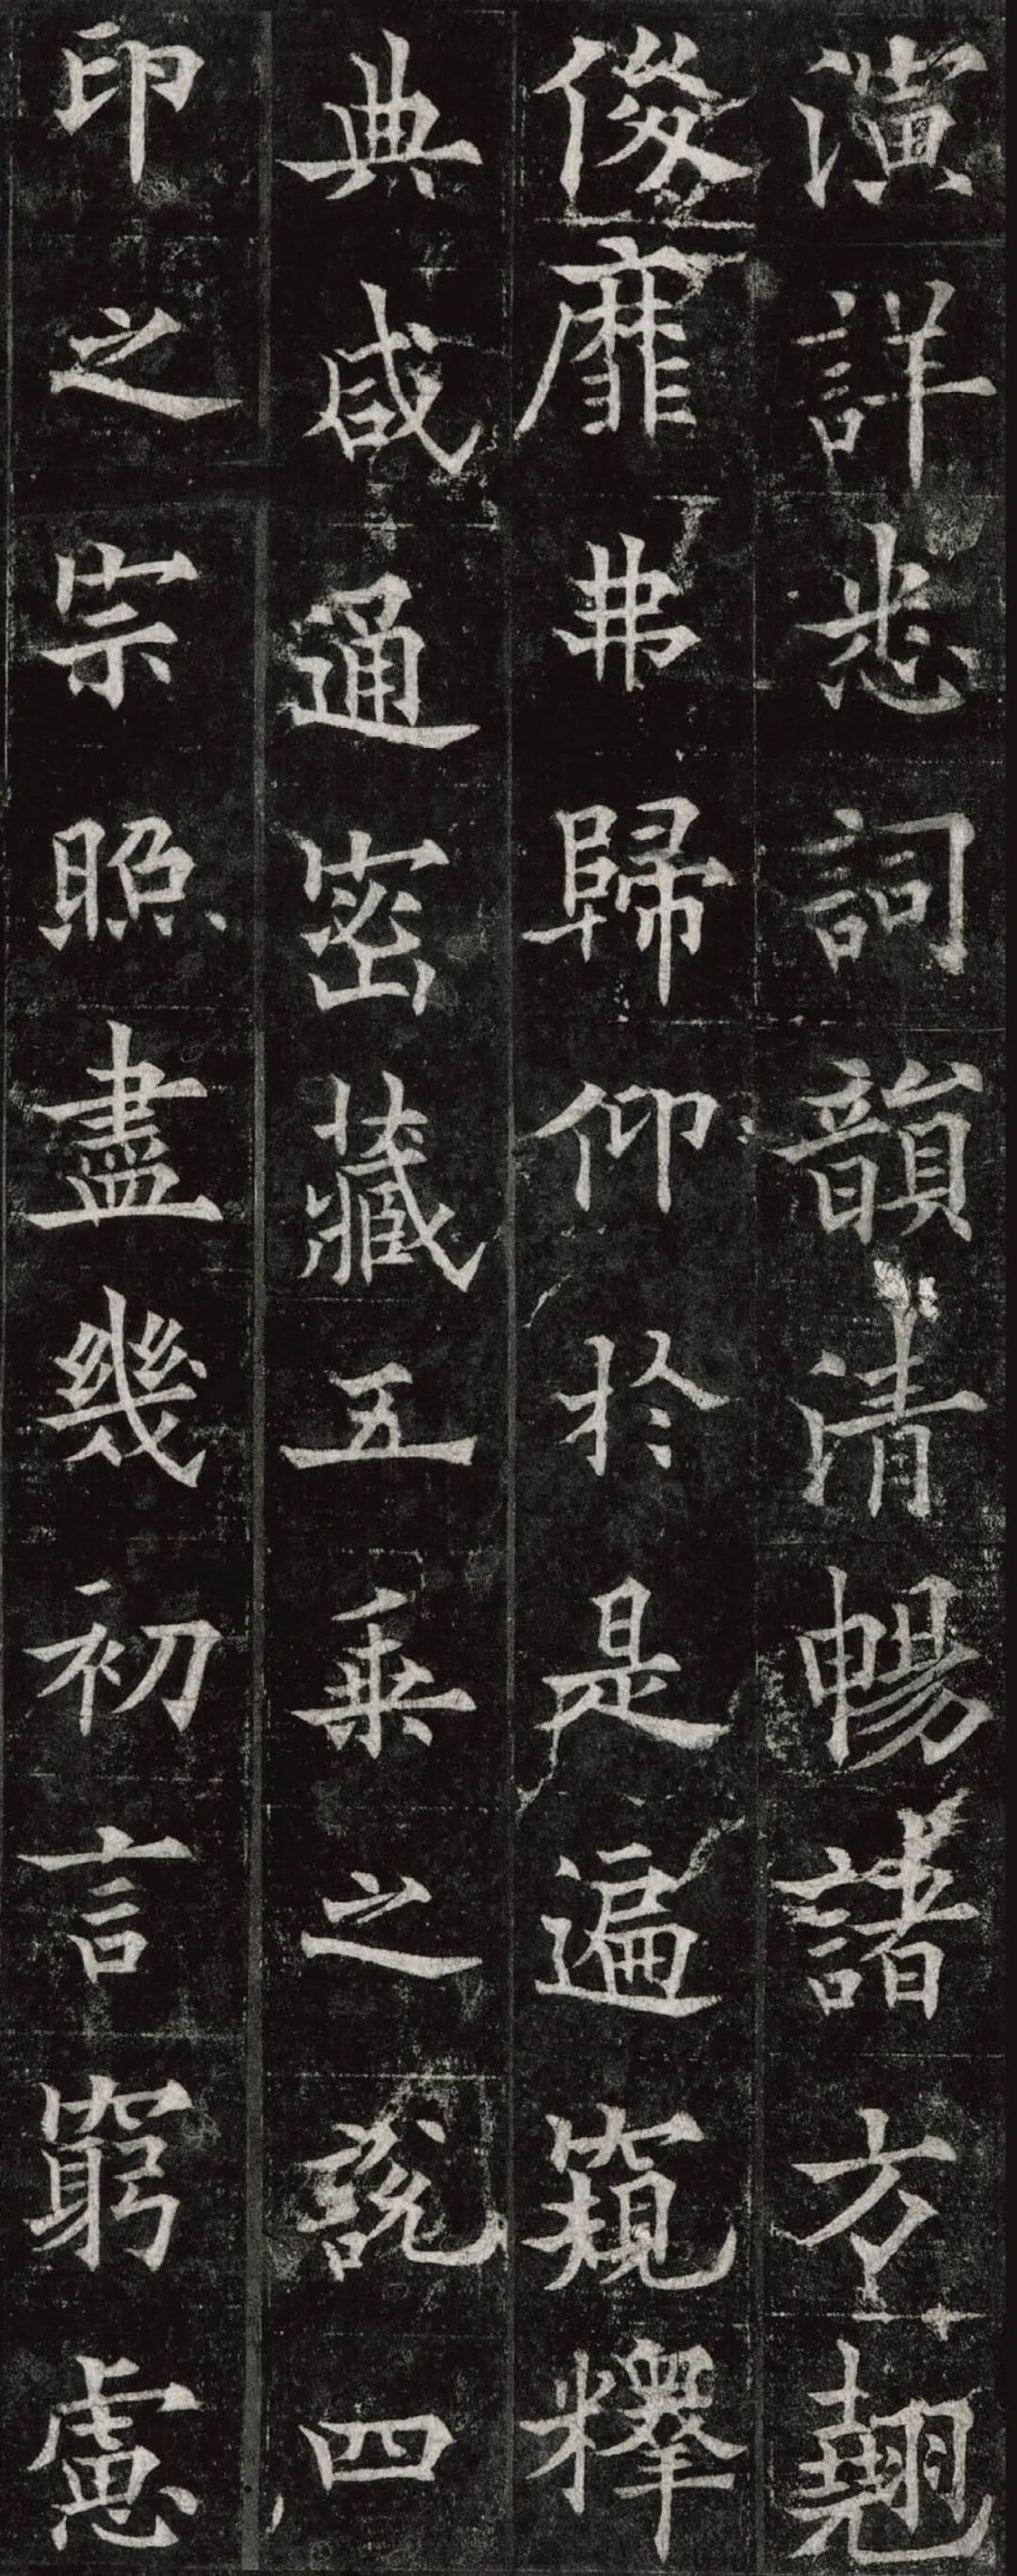 演詳悉詞韻清暢諸方翹
俊靡弗歸仰於是遍窺釋
典咸通密藏五乘之說四
印之宗照盡幾初言窮慮